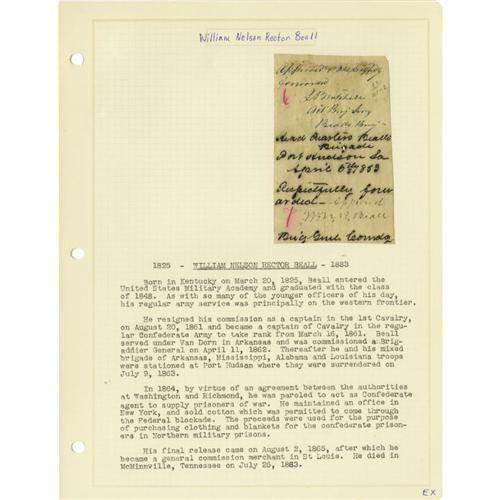 William Nelson Rector Beall
6
Head Quarters Bealls
Brigade
Port Hudson La
April 5th 1863
Respectfully forw
arded - Approved
7
W N R Beall
Brig Genl Comdg
1825 - WILLIAM NELSON RECTOR BEALL - 1883
Born in Kentucky on March 20, 1825, Beall entered the
United States Military Academy and graduated with the class
of 1848. As with so many of the younger officers of his day,
his regular army service was principally on the western frontier.
He resigned his commission as a captain in the 1st Cavalry,
on August 20, 1861 and became a captain of Cavalry in the regu-
lar Confederate Army to take rank from March 16, 1861. Beall
served under Van Dorn in Arkansas and was commissioned a Brig-
addier General on April 11, 1862. Thereafter he and his mixed
brigade of Arkansas, Mississippi, Alabama and Louisiana troops
were stationed at Port Hudson where they were surrendered on
July 9, 1863.
In 1864, by virtue of an agreement between the authorities
at Washington and Richmond, he was paroled to act as Confederate
agent to supply prisoners of war. He maintained an office in
New York, and sold cotton which was permitted to come through
the Federal blockade. The proceeds were used for the purpose
of purchasing clothing and blankets for the confederate prison-
ers in Northern military prisons.
His final release came on August 2, 1865, after which he
became a general commission merchant in St Louis. He died in
McMinnville, Tennessee on July 25, 1883.
EX